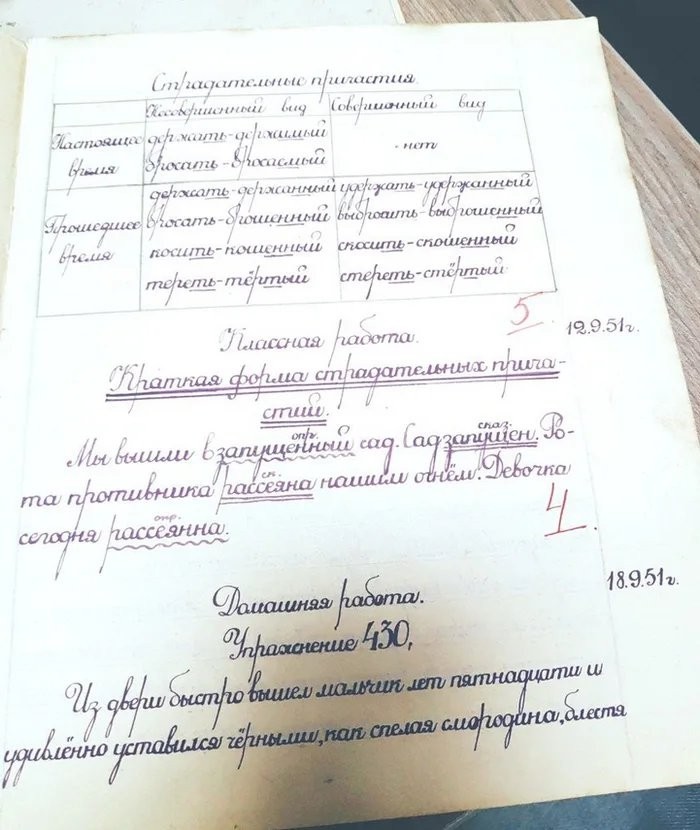 Страдательные причастия.
Несовершенный вид Совершенный вид
Настоящее время
держать-держимый
бросать-бросаемый
нет
Прошедшее время
держать-держанный удержать-удержанный
бросать-брошенный выбросить-выброшенный
косить-кошенный скосить-скошенный
тереть-тёртый стереть-стёртый
5
12.9.51г.
Классная работа.
Краткая форма страдательных прича-
стий.
опр. сказ.
Мы вышли в запущенный сад. Сад запущен. Ро-
ск.
та противника рассеяна нашим огнём. Девочка
опр.
сегодня рассеянна.
4
18.9.51г.
Домашняя работа.
Упражнение 430,
Из двери быстро вышел мальчик лет пятнадцати и
удивлённо уставился чёрными, как спелая смородина, блестя